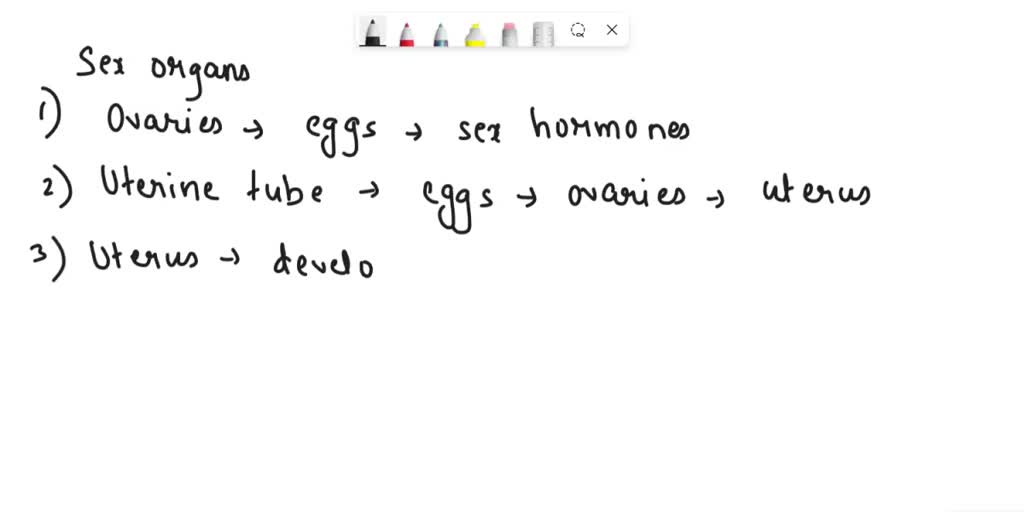 Sex organs
1) Ovaries → eggs → sex hormones
2) Uterine tube → eggs → ovaries → uterus
3) Uterus → develo